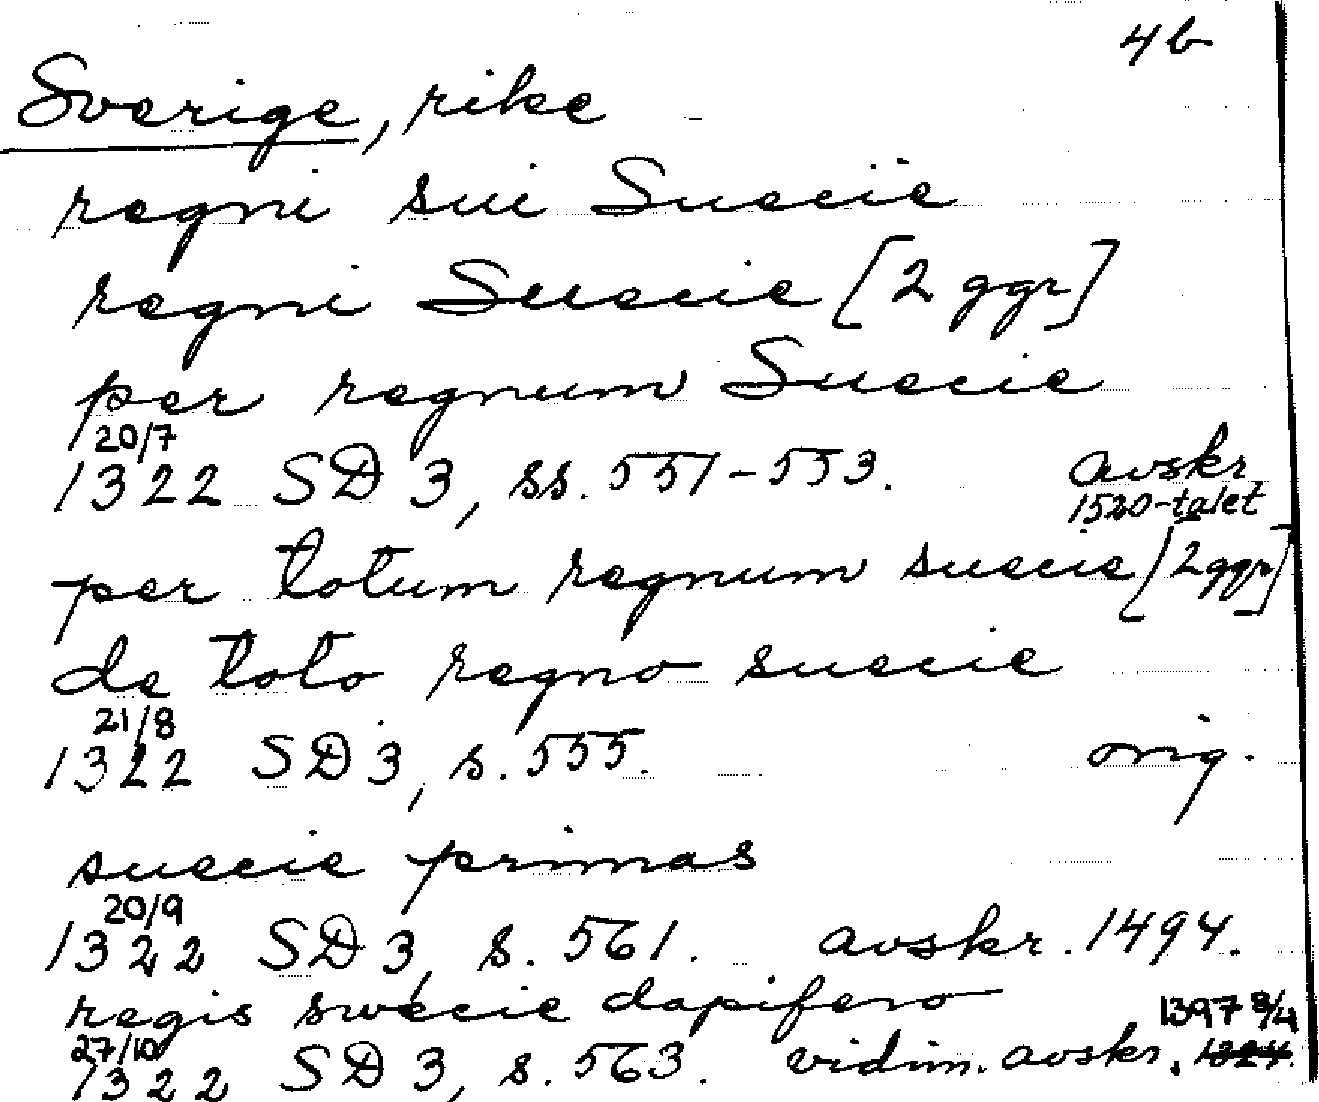 4b
Sverige, rike
regni sui Suecie
regni Suecie [2 ggr]
per regnum Suecie
20/7
1322 SD 3, ss. 551-553. avskr.
1520-talet
per totum regnum suecie [2 ggr]
de toto regno suecie
21/8
1322 SD 3, s. 555. orig.
suecie primas
20/9
1322 SD 3, s. 561. avskr. 1494.
regis swecie dapifero
27/10 1397 3/4
1322 SD 3, s. 563. vidim. avskr. 1324.